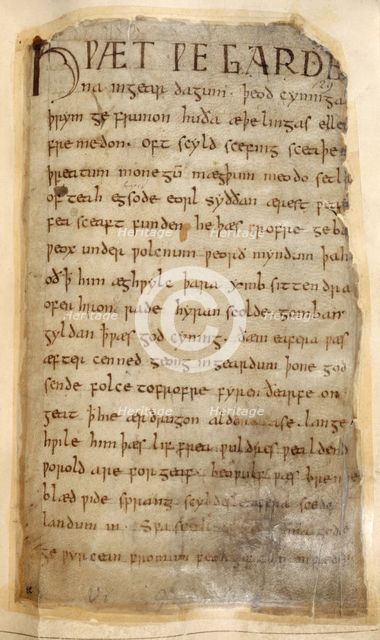 HÞÆT ǷE GARDE
na ingear dagum · þeod cyninga
þrym ge frunon huða æþelingas elle
fre medon. oft scyld scefing sceaþe
þreatum monegū mægþum meodo setla
of teah egsode eorl syððan ærest ƿear
fea sceaft funden he þæs frofre geba
ƿeox under ƿolcnum ƿeorð myndum þah
oð þ him æghƿylc þara ymb sittendra
ofer hron rade hyran scolde gomban
gyldan þ ƿæs god cyning. ðæm eafera ƿæs
æfter cenned geong ingeardum þone god
sende folce tofrofre fyren ðearfe on
geat þ hie ær drugon aldor ase. lange
hƿile him þæs lif frea ƿuldres ƿealdend
ƿorold are forgeaf. beoƿulf ƿæs breme
blæd ƿide sprang scyldes eafera scede
landum in. Sƿa sceal ma gode
ge ƿyrcean fromum feoh
Heritage
Heritage
Heritage
Heritage
Heritage
Heritage